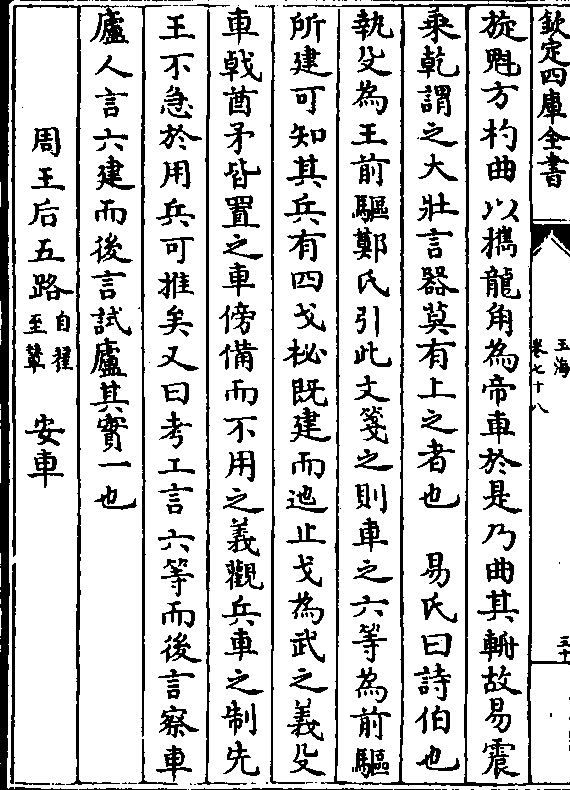 欽定四庫全書
玉海
卷七十八
三十
旋魁方杓曲以攜龍角為帝車於是乃曲其輈故易震
乘乾謂之大壯言器莫有上之者也 易氏曰詩伯也
執殳為王前驅鄭氏引此文箋之則車之六等為前驅
所建可知其兵有四戈柲既建而迆止戈為武之義殳
車戟酋矛皆置之車傍備而不用之義觀兵車之制先
王不急於用兵可推矣又曰考工言六等而後言察車
廬人言六建而後言試廬其實一也
周王后五路自翟至輦 安車